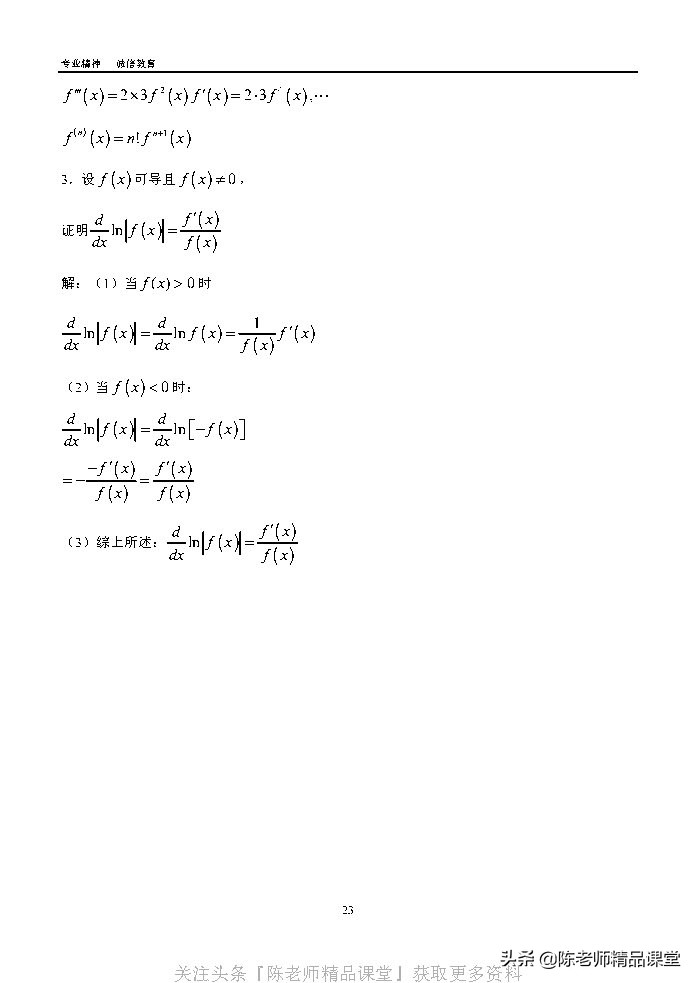 专业精神 诚信教育
f'''(x)=2×3f²(x)f'(x)=2·3f˙(x),⋯
f⁽ⁿ⁾(x)=n!fⁿ⁺¹(x)
3．设 f(x) 可导且 f(x)≠0，
证明 d/dx ln|f(x)|=f'(x)/f(x)
解：（1）当 f(x)>0 时
d/dx ln|f(x)|=d/dx ln f(x)=1/f(x) f'(x)
（2）当 f(x)<0 时：
d/dx ln|f(x)|=d/dx ln[−f(x)]
=−−f'(x)/f(x)=f'(x)/f(x)
（3）综上所述：d/dx ln|f(x)|=f'(x)/f(x)
23
头条 @陈老师精品课堂
关注头条『陈老师精品课堂』获取更多资料